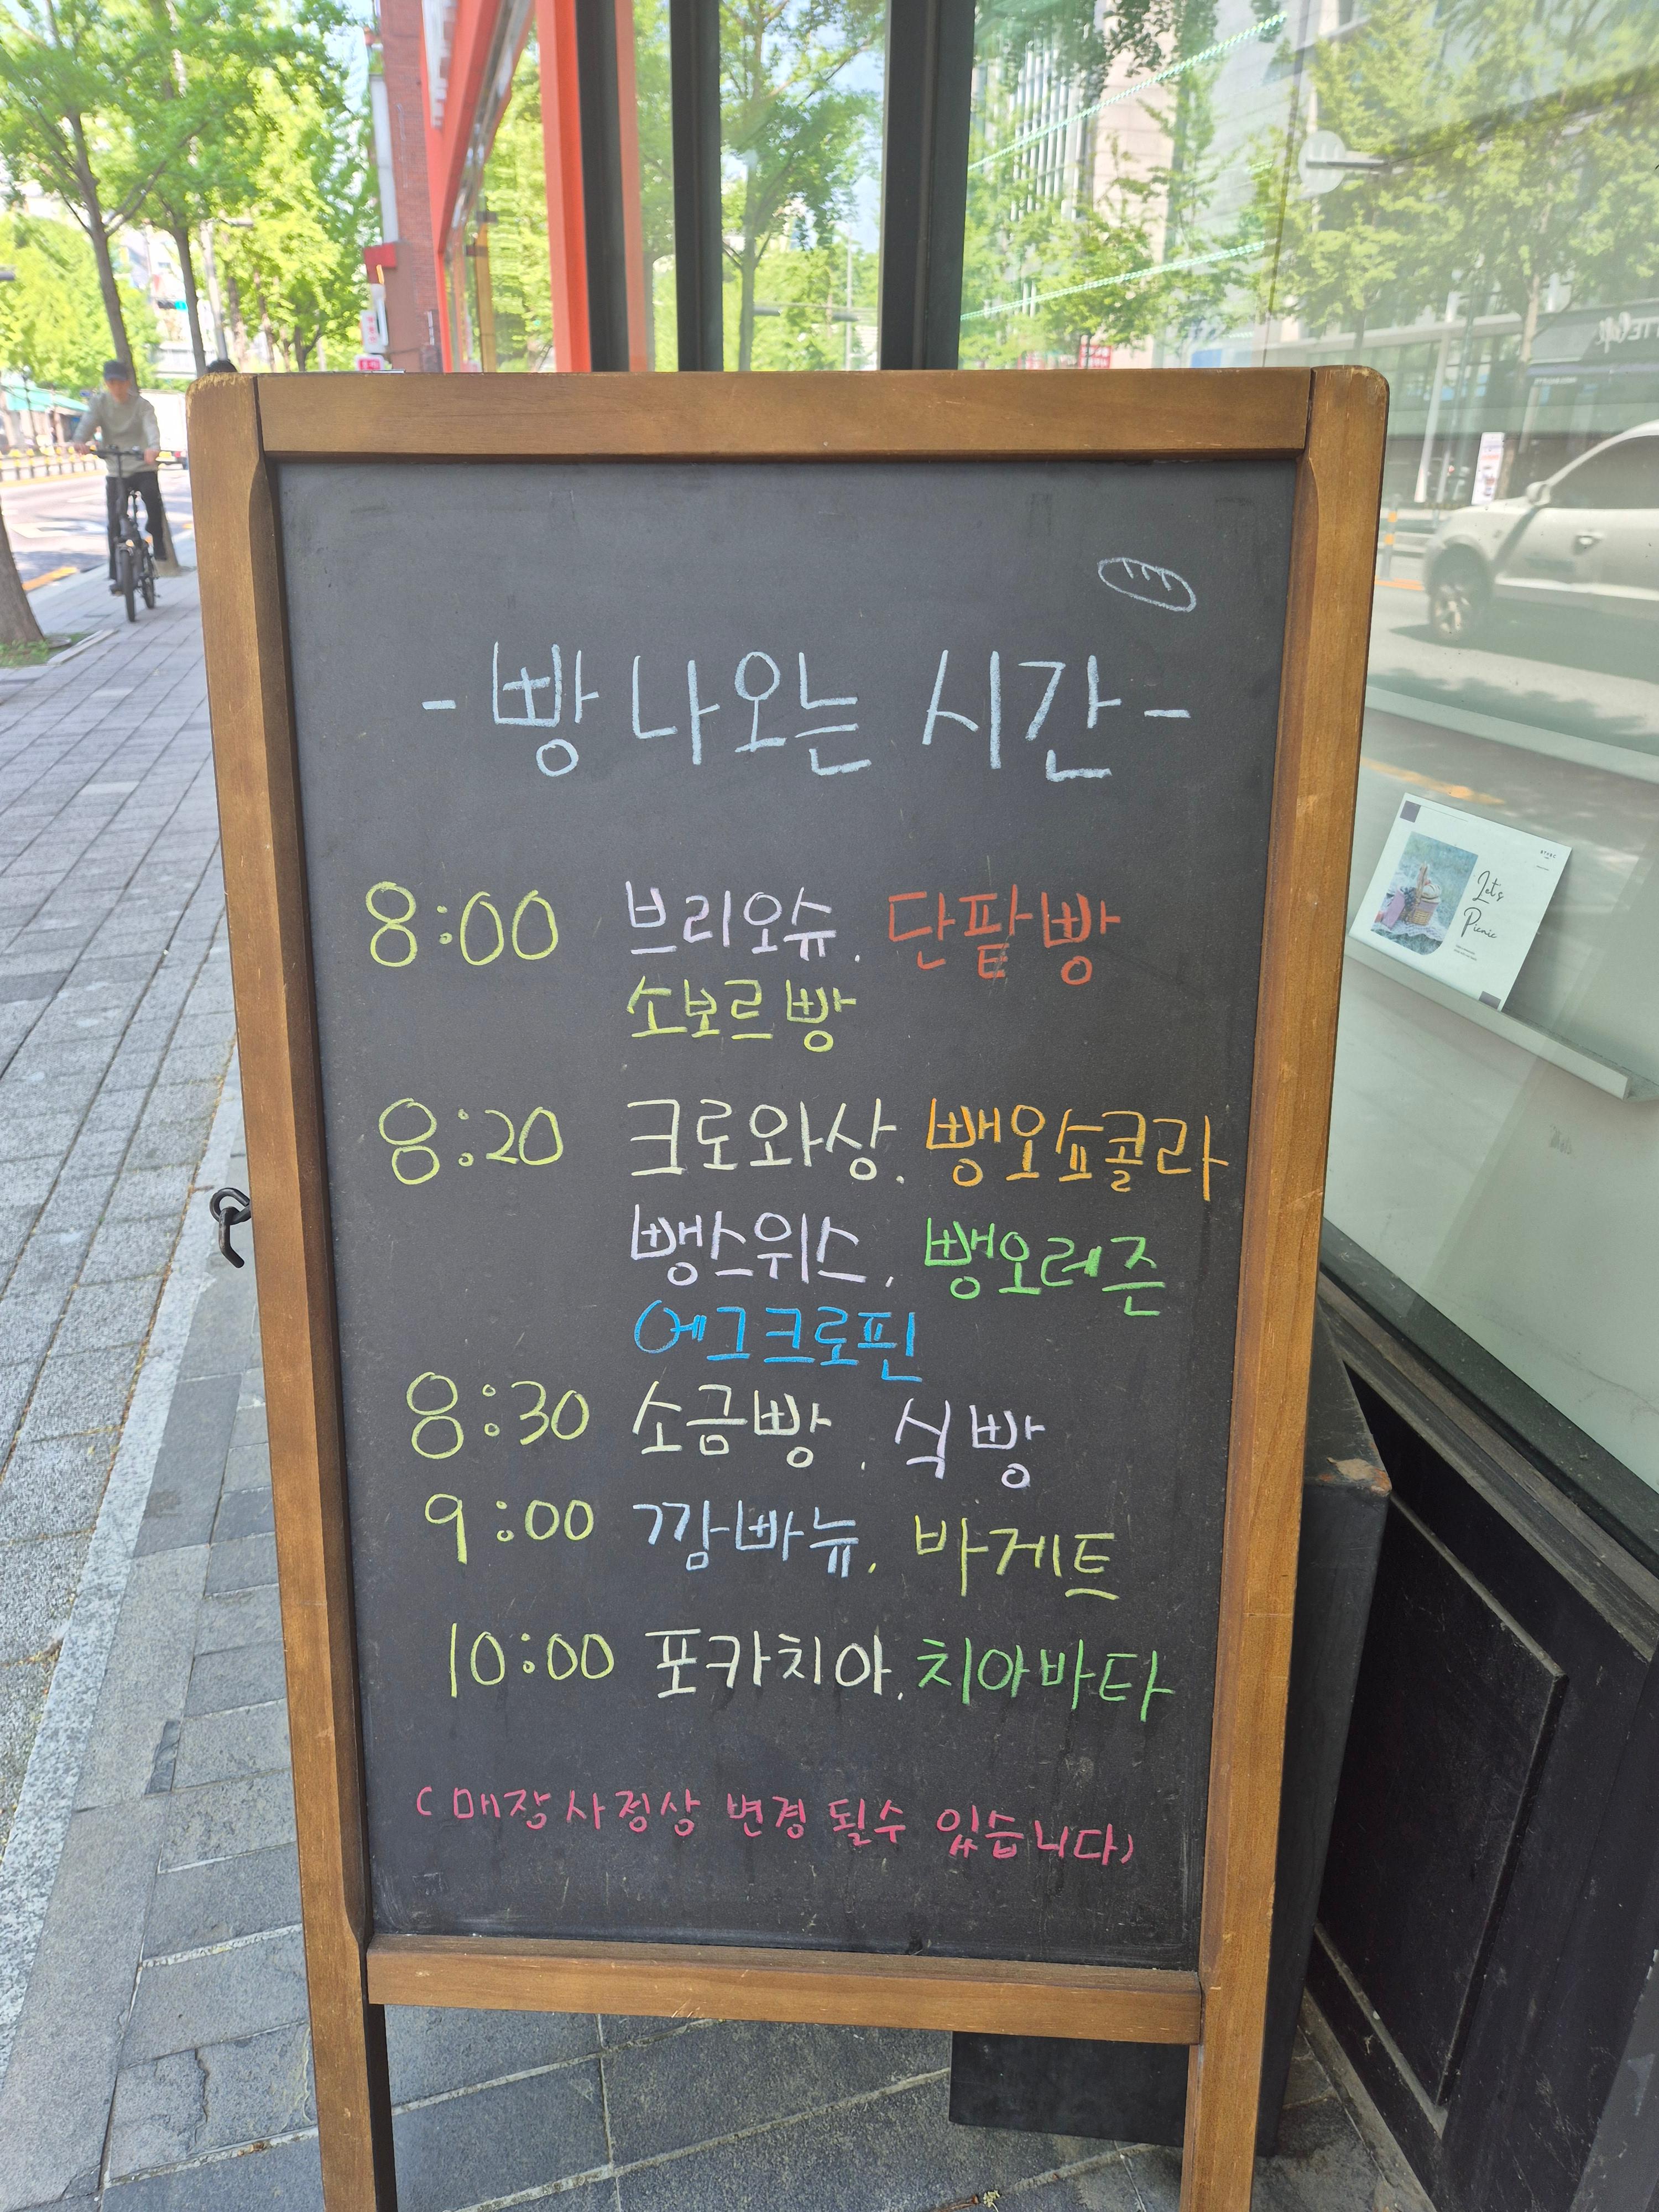 - 빵 나오는 시간 -
8:00 브리오슈. 단팥빵
소보르빵
8:20 크로와상. 뺑오쇼콜라
뺑스위스. 뺑오레즌
에그크로핀
8:30 소금빵. 식빵
9:00 깜빠뉴. 바게트
10:00 포카치아. 치아바타
(매장사정상 변경 될수 있습니다)
Let's
Picnic